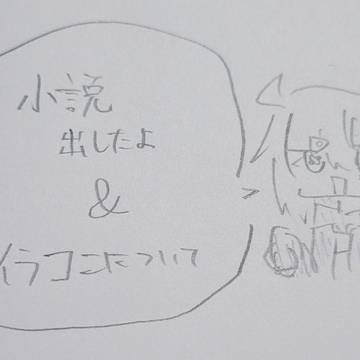 小説
出したよ
&
イラコンについて